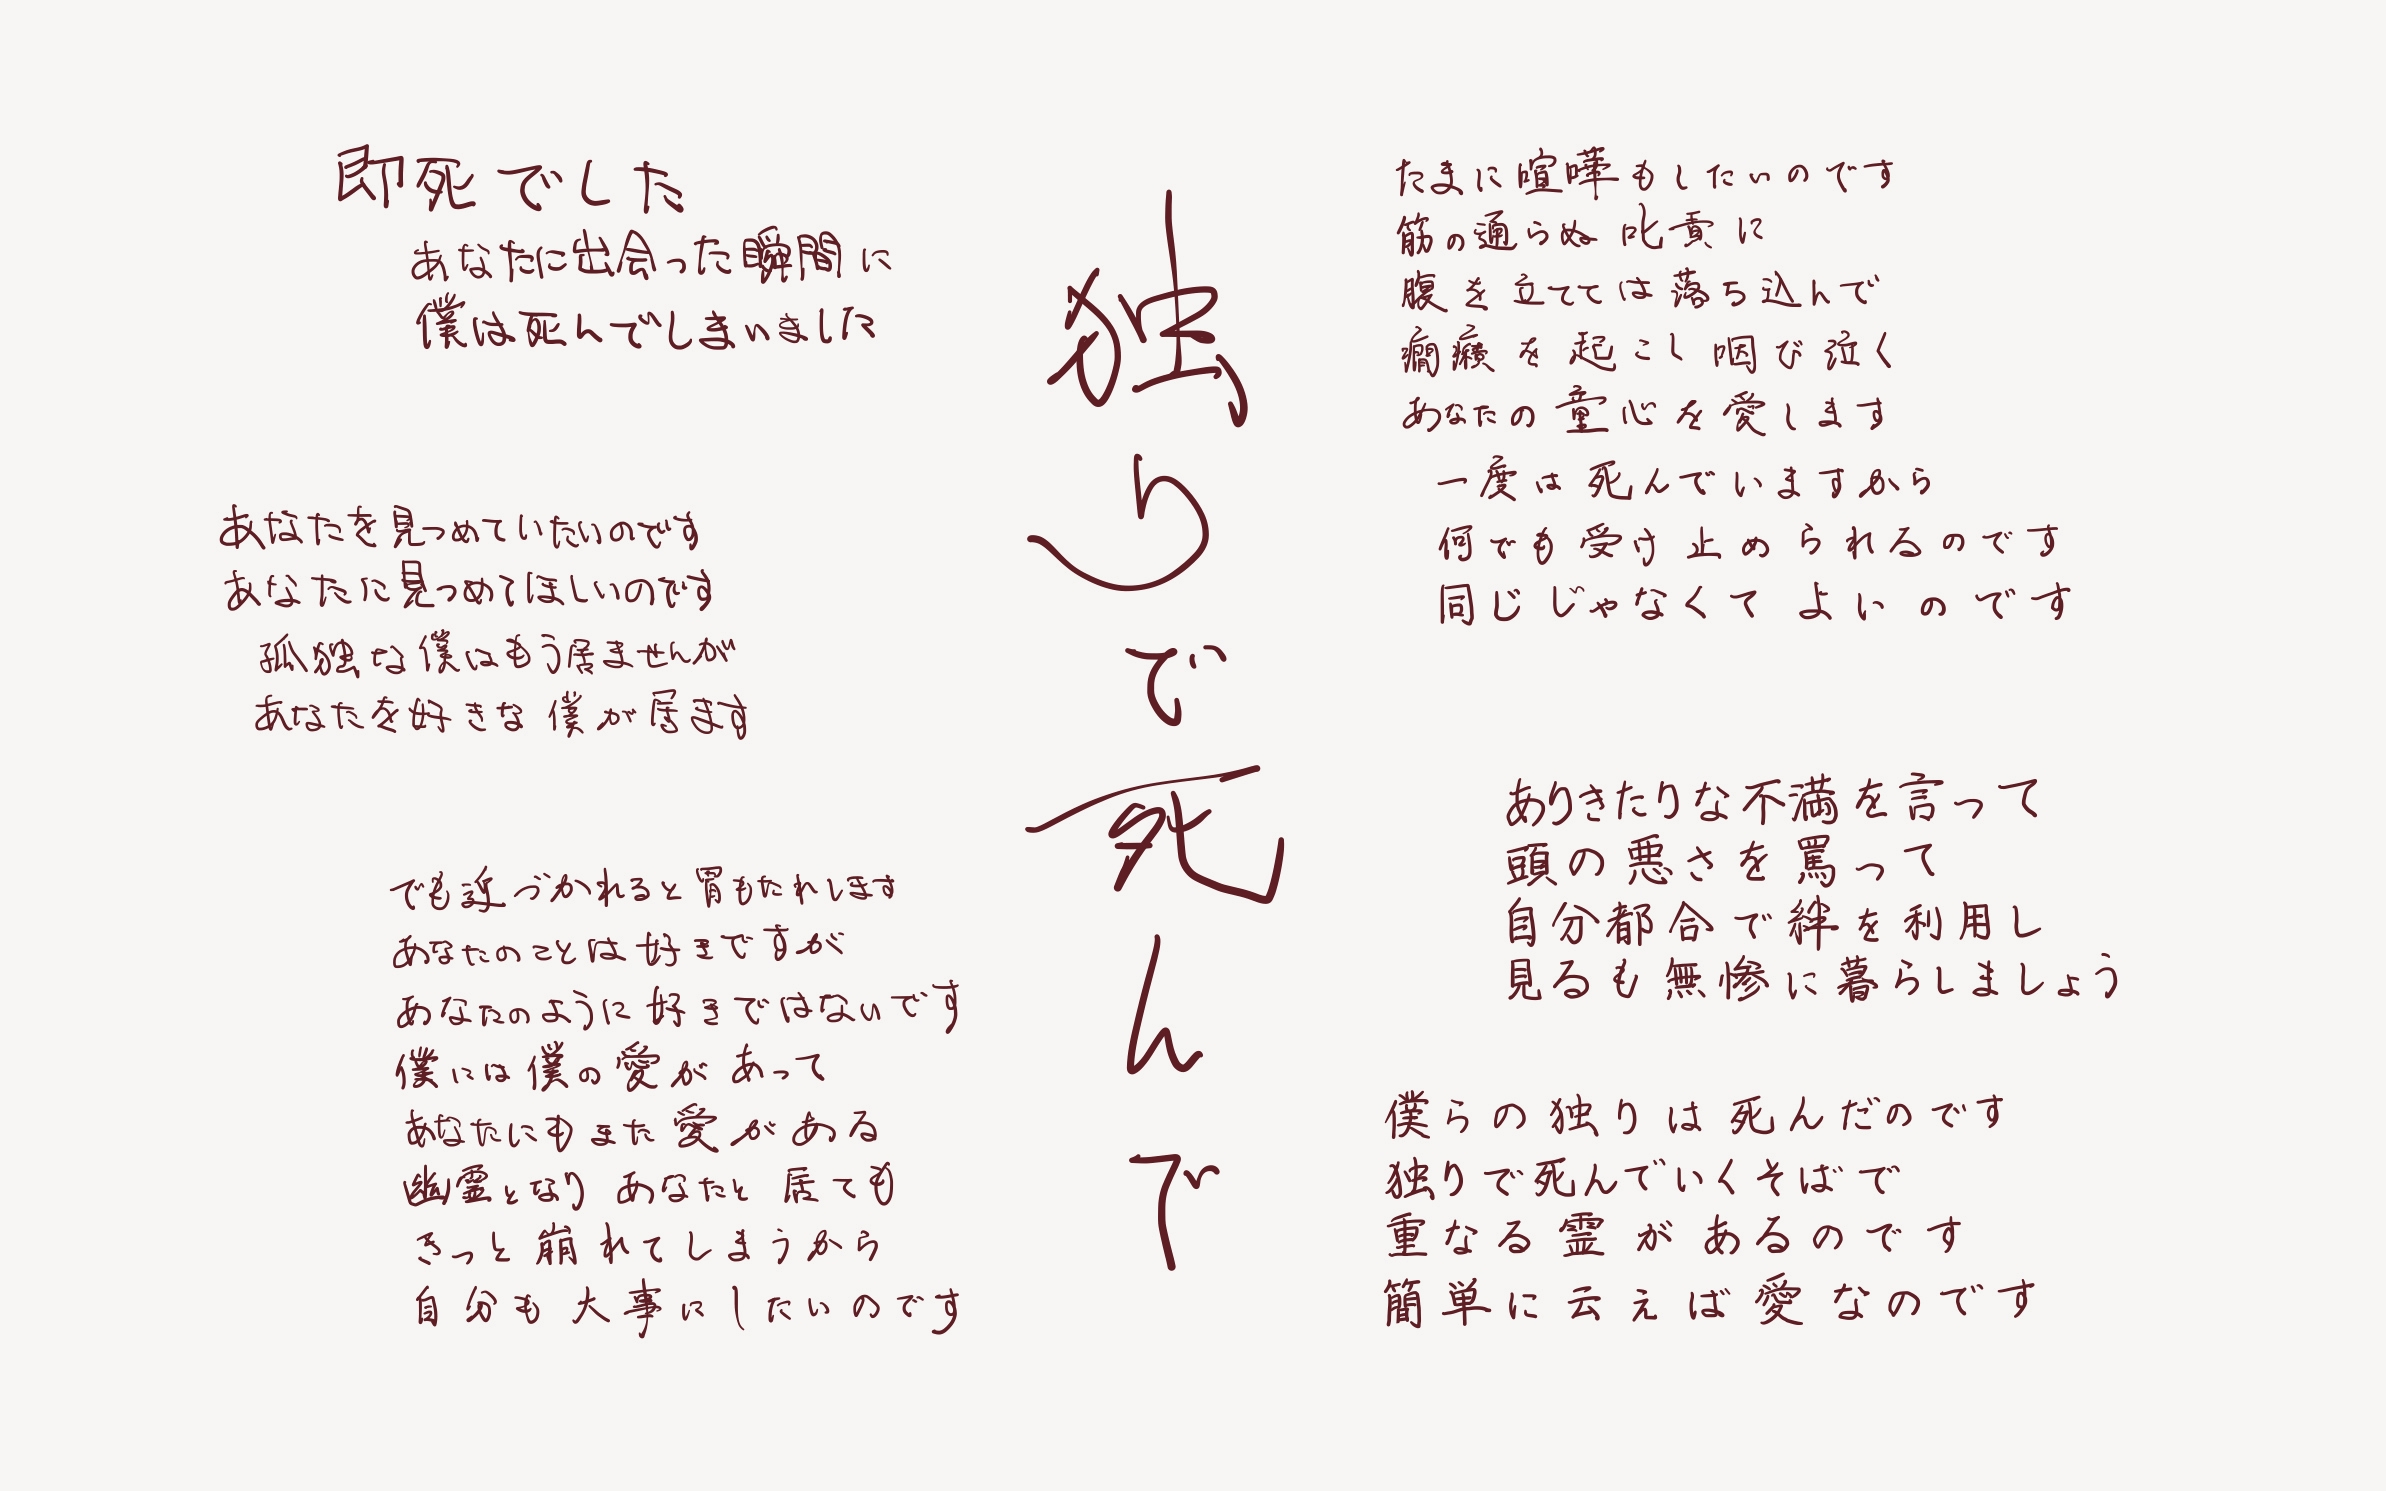 独りで死んで
即死でした
あなたに出会った瞬間に
僕は死んでしまいました
あなたを見つめていたいのです
あなたに見つめてほしいのです
孤独な僕はもう居ませんが
あなたを好きな僕が居ます
でも近づかれると胃もたれします
あなたのことは好きですが
あなたのように好きではないです
僕には僕の愛があって
あなたにもまた愛がある
幽霊となり あなたと居ても
きっと崩れてしまうから
自分も大事にしたいのです
たまに喧嘩もしたいのです
筋の通らぬ叱責に
腹を立てては落ち込んで
癇癪を起こし咽び泣く
あなたの童心を愛します
一度は死んでいますから
何でも受け止められるのです
同じじゃなくてよいのです
ありきたりな不満を言って
頭の悪さを罵って
自分都合で絆を利用し
見るも無惨に暮らしましょう
僕らの独りは死んだのです
独りで死んでいくそばで
重なる霊があるのです
簡単に云えば愛なのです